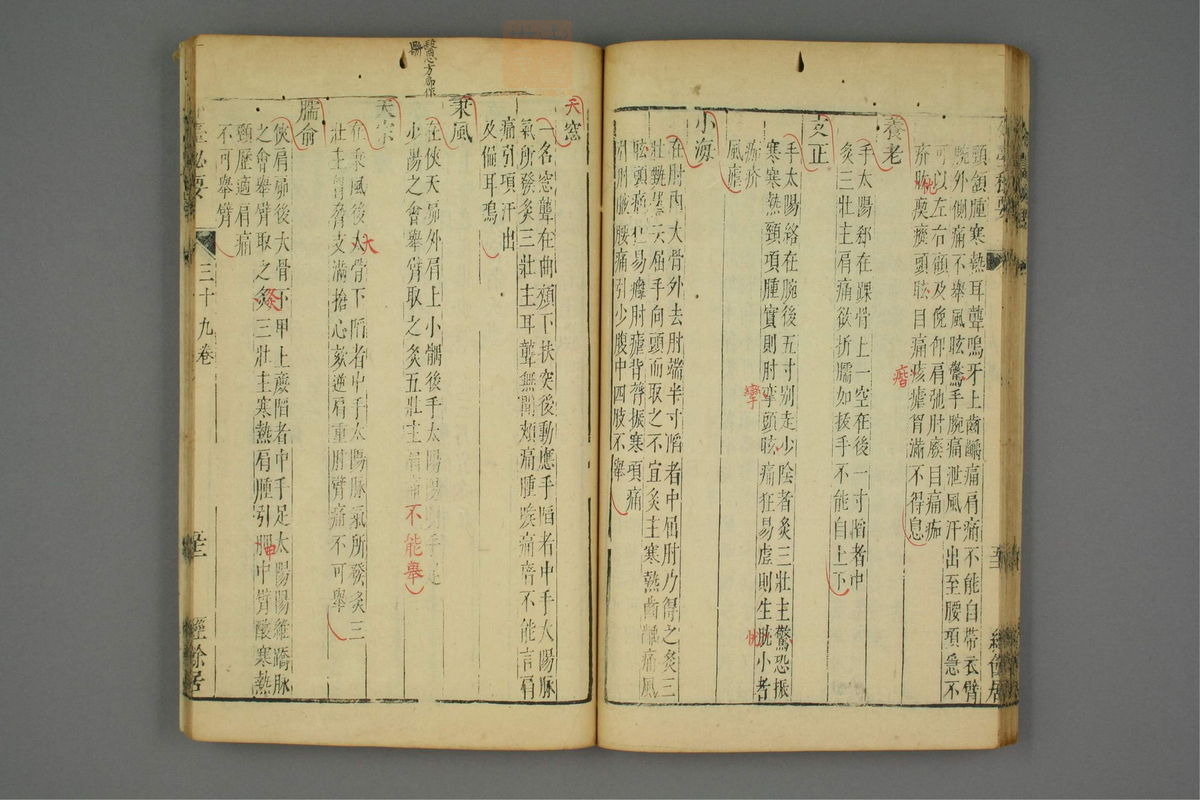 頸頷腫寒熱耳聾鳴牙上齒齲痛肩痛不能自帶衣臂
腕外側痛不舉風眩驚手腕痛泄風汗出至腰項急不
可以左右顧及俛仰肩弛肘廢目痛痂
疥瘈瘲頭眩目痛痎瘧胃滿不得息
養老
手太陽郄在踝骨上一空在後一寸陷者中
灸三壯主肩痛欲折臑如拔手不能自上下
支正
手太陽絡在腕後五寸別走少陰者灸三壯主驚恐振
寒寒熱頸項腫實則肘攣頭眩痛狂易虛則生肬小者
痂疥
風瘧
攣
小海
在肘內大骨外去肘端半寸陷者中屈肘乃得之灸三
壯甄權云屈手向頭而取之不宜灸主寒熱齒齲痛風
眩頭痛狂易癰肘瘧背膂振寒項痛
引肘腋腰痛引少腹中四肢不舉
天窓
一名窓聾在曲頰下扶突後動應手陷者中手太陽脉
氣所發灸三壯主耳聾無聞頰痛腫喉痛瘖不能言肩
痛引項汗出
及偏耳鳴
秉風
在俠天節外肩上小髃後手太陽陽明手足
少陽之會舉臂取之灸五壯主肩痛不能舉
天宗
在秉風後大骨下陷者中手太陽脉氣所發灸三
壯主胷脅支滿搶心欬逆肩重肘臂痛不可舉
臑俞
俠肩節後大骨下甲上廉陷者中手足太陽陽維蹻脉
之會舉臂取之灸三壯主寒熱肩腫引胛中臂酸寒熱
頸歷適肩痛
不可舉臂
三十九卷
經餘居